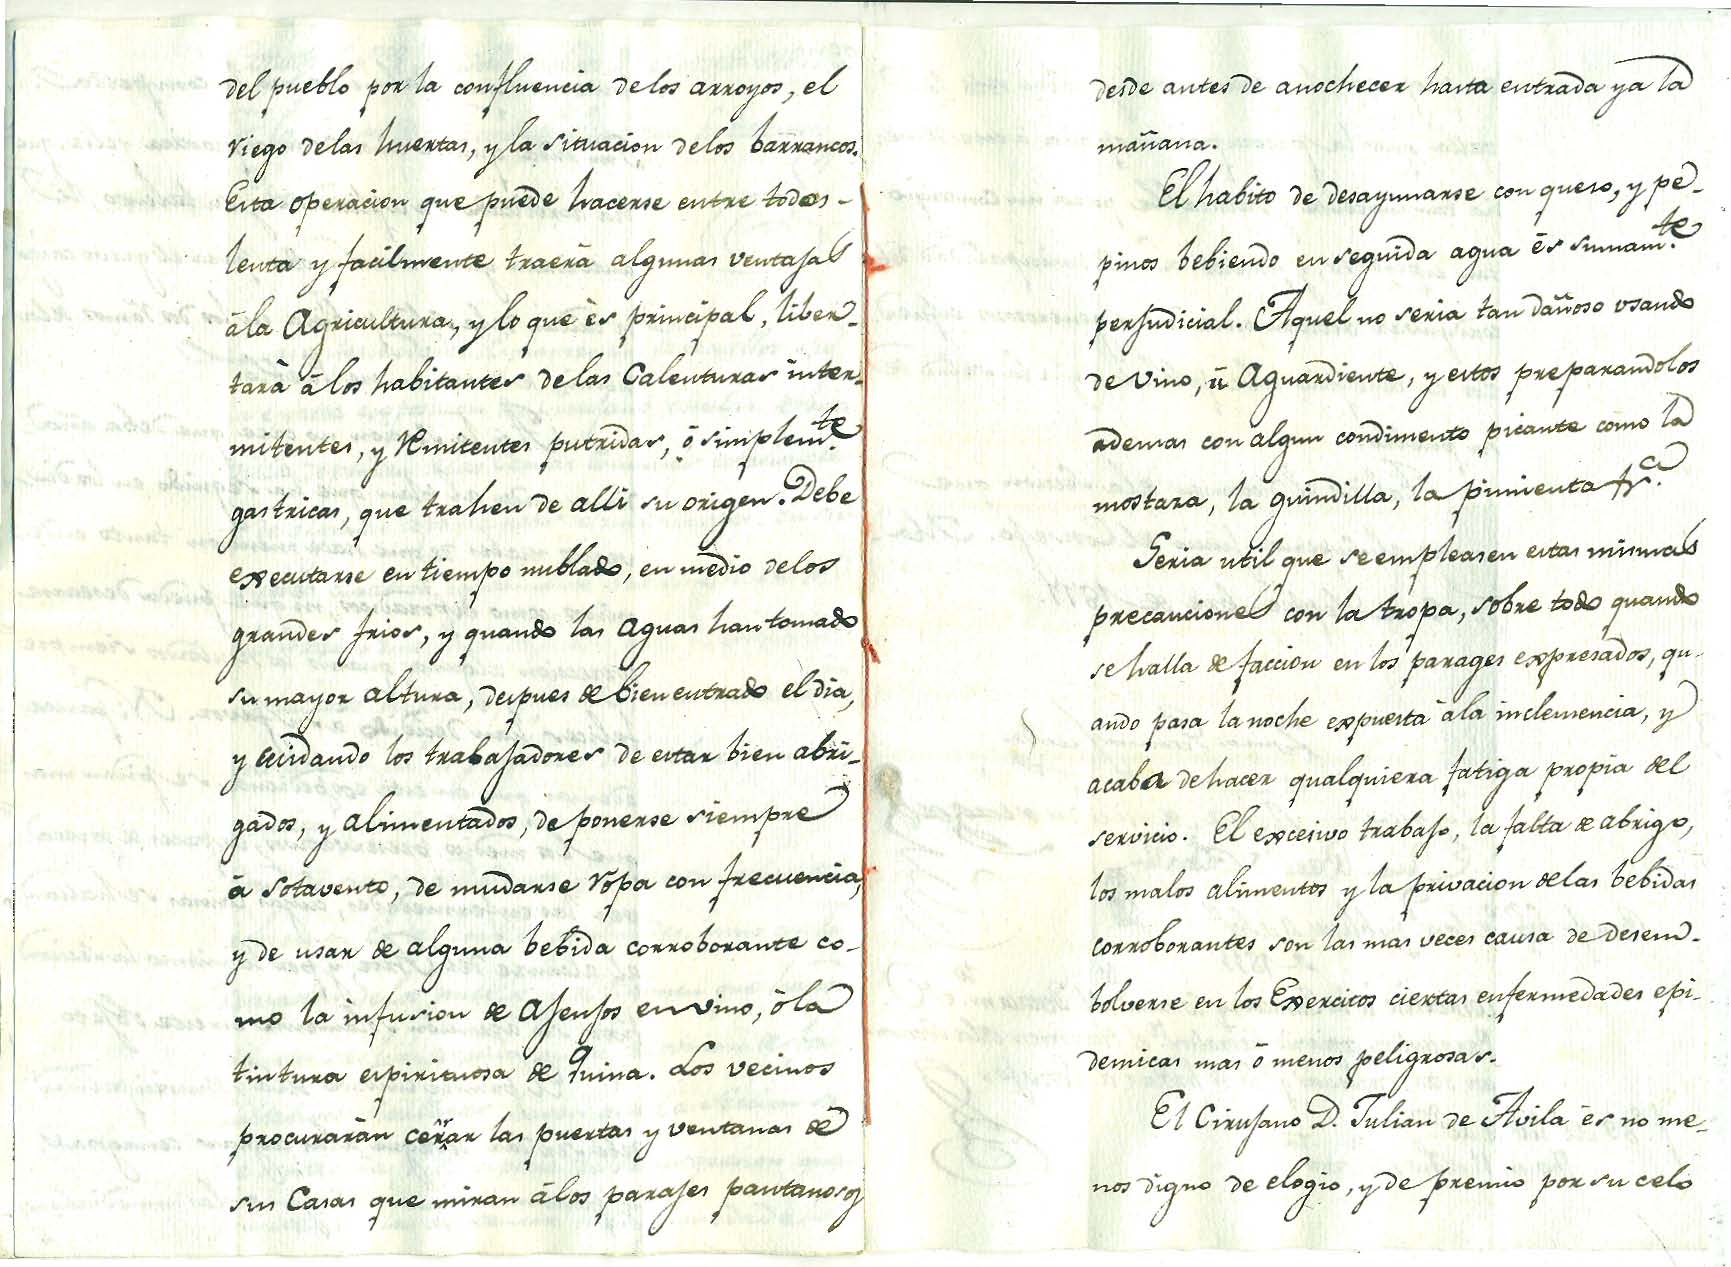 del pueblo por la confluencia de los arroyos, el
riego de las huertas, y la situacion de los barrancos.
Esta operacion que puede hacerse entre todos
lenta y facilmente traerà algunas ventajas
à la Agricultura, y lo que ès principal, liber-
tarà à los habitantes de las Calenturas inter-
mitentes, y Remitentes putridas, ò simplemte.
gastricas, que trahen de alli su origen. Debe
executarse en tiempo nublado, en medio de los
grandes frios, y quando las aguas han tomado
su mayor altura, despues de bien entrado el dia,
y cuidando los trabajadores de estar bien abri-
gados, y alimentados, de ponerse siempre
à sotavento, de mudarse ropa con frecuencia,
y de usar de alguna bebida corroborante co-
mo la infusion de Ajenjos en vino, ò la
tintura espirituosa de Quina. Los vecinos
procuraràn cerrar las puertas y ventanas de
sus Casas que miran à los parajes pantanosos
desde antes de anochecer hasta entrada ya la
mañana.
El habito de desayunarse con queso, y pe-
pinos bebiendo en seguida agua ès sumamte.
perjudicial. Aquel no seria tan dañoso usando
de Vino, ù Aguardiente, y estos preparandolos
ademas con algun condimento picante como la
mostara, la guindilla, la pimienta &ca.
Seria util que se empleasen estas mismas
precauciones con la tropa, sobre todo quando
se halla de faccion en los parages expresados, qu-
ando pasa la noche expuesta à la inclemencia, y
acaba de hacer qualquiera fatiga propia del
servicio. El excesivo trabajo, la falta de abrigo,
los malos alimentos y la privacion de las bebidas
corroborantes son las mas veces causa de desem-
bolverse en los Exercitos ciertas enfermedades epi-
demicas mas ò menos peligrosas.
El Cirujano D. Julian de Avila ès no me-
nos digno de elogio, y de premio por su celo